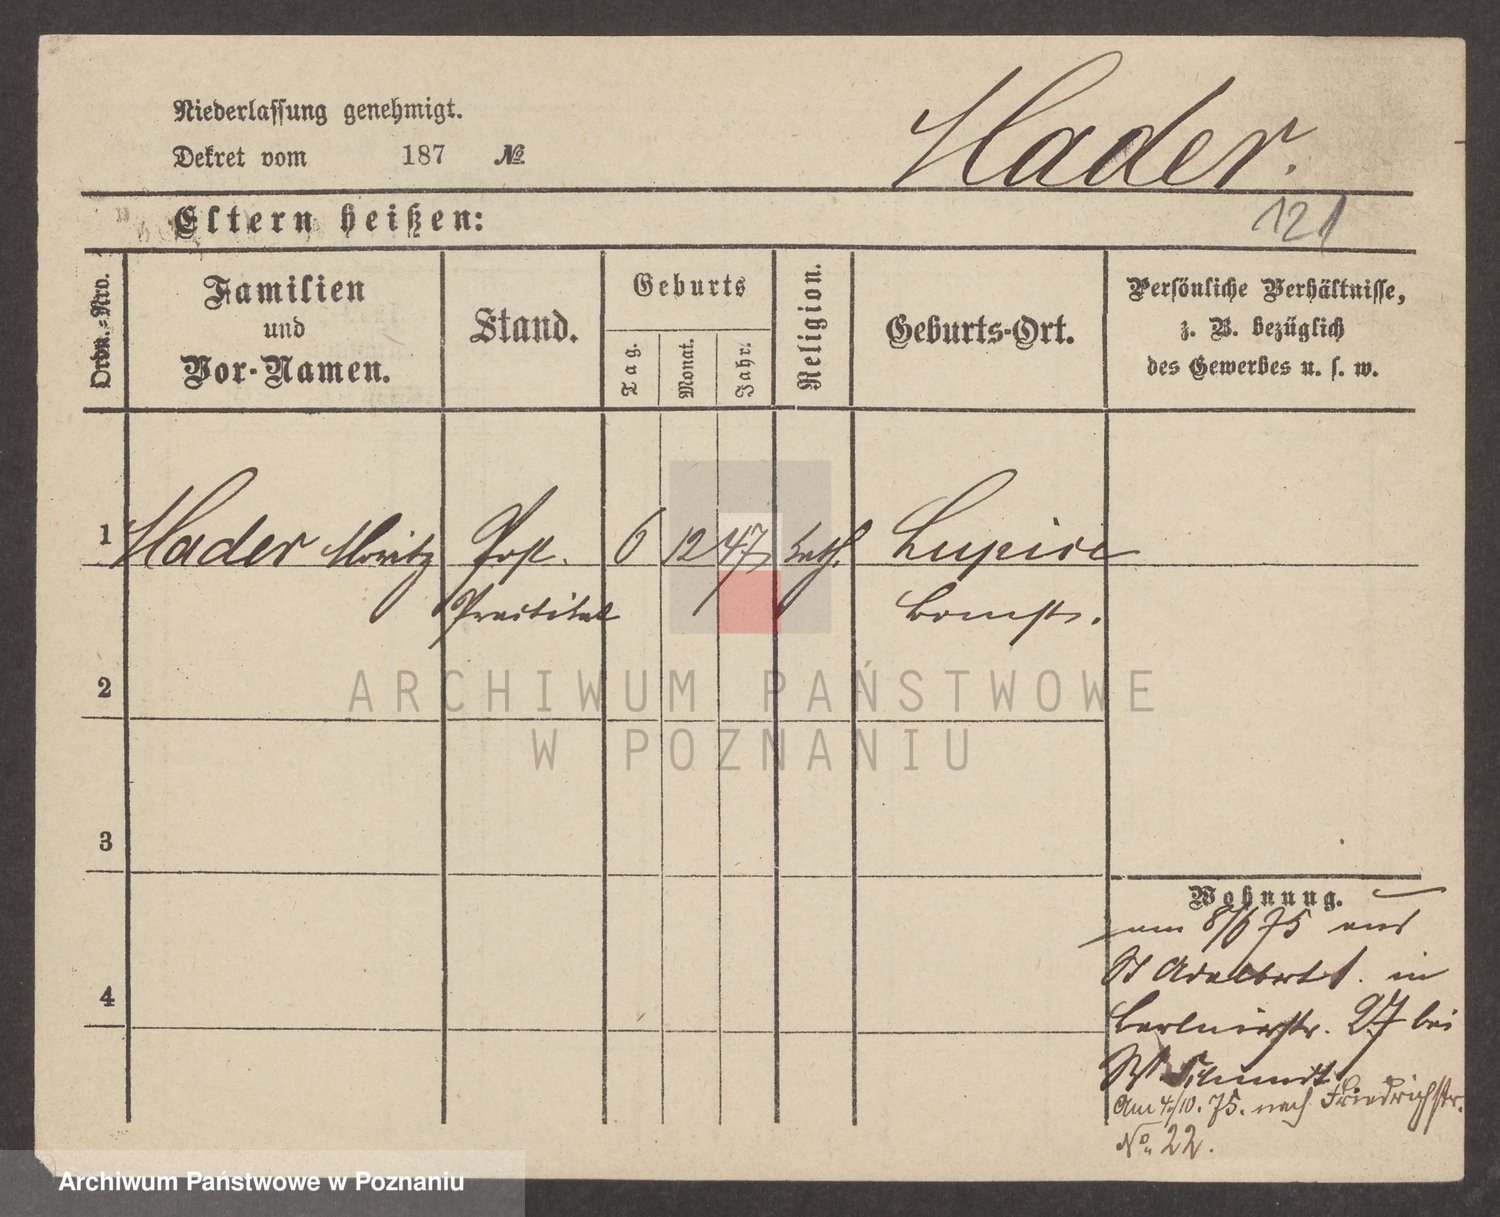 Niederlassung genehmigt.
Dekret vom 187 №
Hader.
Eltern heißen:
121
Ordn.-Nro.
Familien
und
Vor-Namen.
Stand.
Geburts
Tag.
Monat.
Jahr.
Religion.
Geburts-Ort.
Persönliche Verhältnisse,
z. B. bezüglich
des Gewerbes u. s. w.
1 Hader Moritz Post. 6 12 47 kath.
Bomst.
2
ARCHIWUM PAŃSTWOWE
W POZNANIU
3
4
Wohnung.
am 8/6 75 aus
St Adalbert 1. in
27 bei
Schmidt
Am 4/10. 75. nach Friedrichstr.
No. 22.
Archiwum Państwowe w Poznaniu